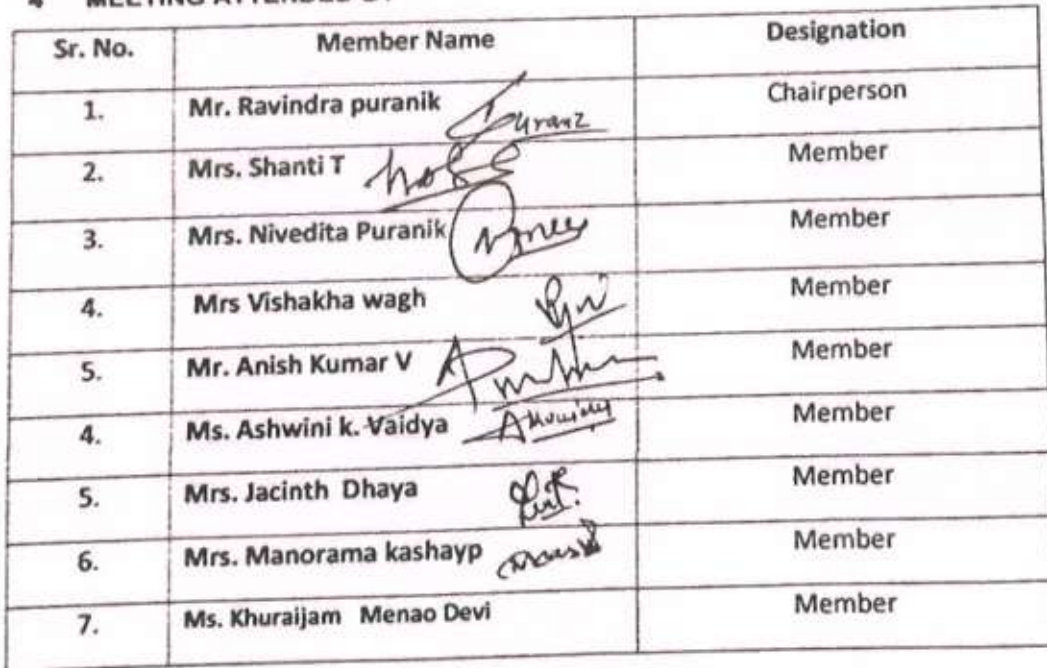 4 MEETING ATTENDED BY
Sr. No. Member Name Designation
1. Mr. Ravindra puranik Chairperson
2. Mrs. Shanti T Member
3. Mrs. Nivedita Puranik Member
4. Mrs Vishakha wagh Member
5. Mr. Anish Kumar V Member
4. Ms. Ashwini k. Vaidya Member
5. Mrs. Jacinth Dhaya Member
6. Mrs. Manorama kashayp Member
7. Ms. Khuraijam Menao Devi Member